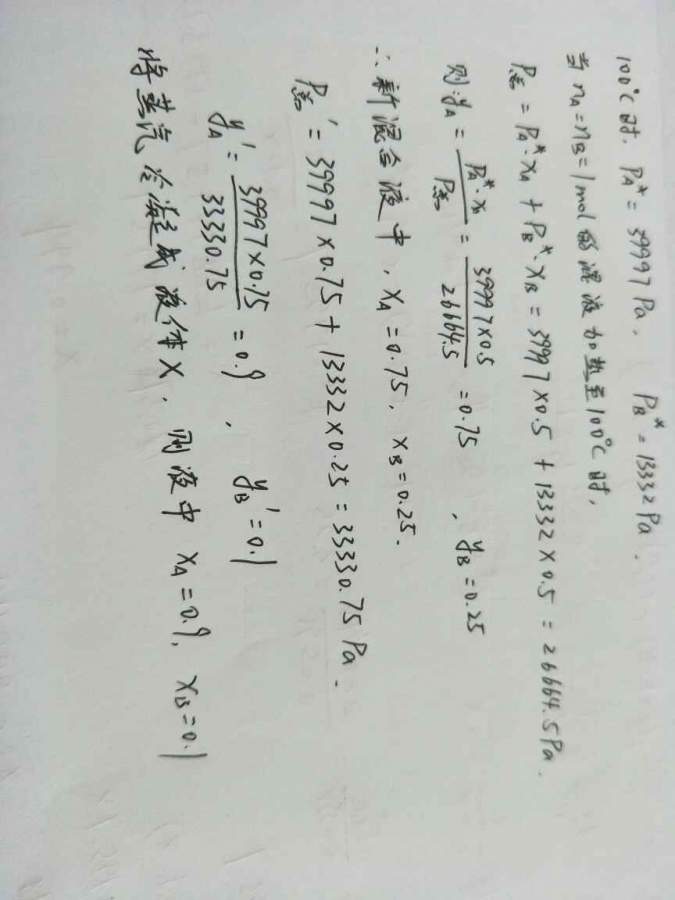 100℃时. PA* = 39997 Pa, PB* = 13332 Pa.
当 nA = nB = 1 mol 的混液加热至100℃时,
P总 = PA*·xA + PB*·xB = 39997×0.5 + 13332×0.5 = 26664.5 Pa.
则: yA = PA*·xA / P总 = 39997×0.5 / 26664.5 = 0.75 , yB = 0.25
∴ 新混合液中, xA = 0.75, xB = 0.25.
P总' = 39997×0.75 + 13332×0.25 = 33330.75 Pa.
yA' = 39997×0.75 / 33330.75 = 0.9 , yB' = 0.1
将蒸汽冷凝成液体X, 则液中 xA = 0.9, xB = 0.1